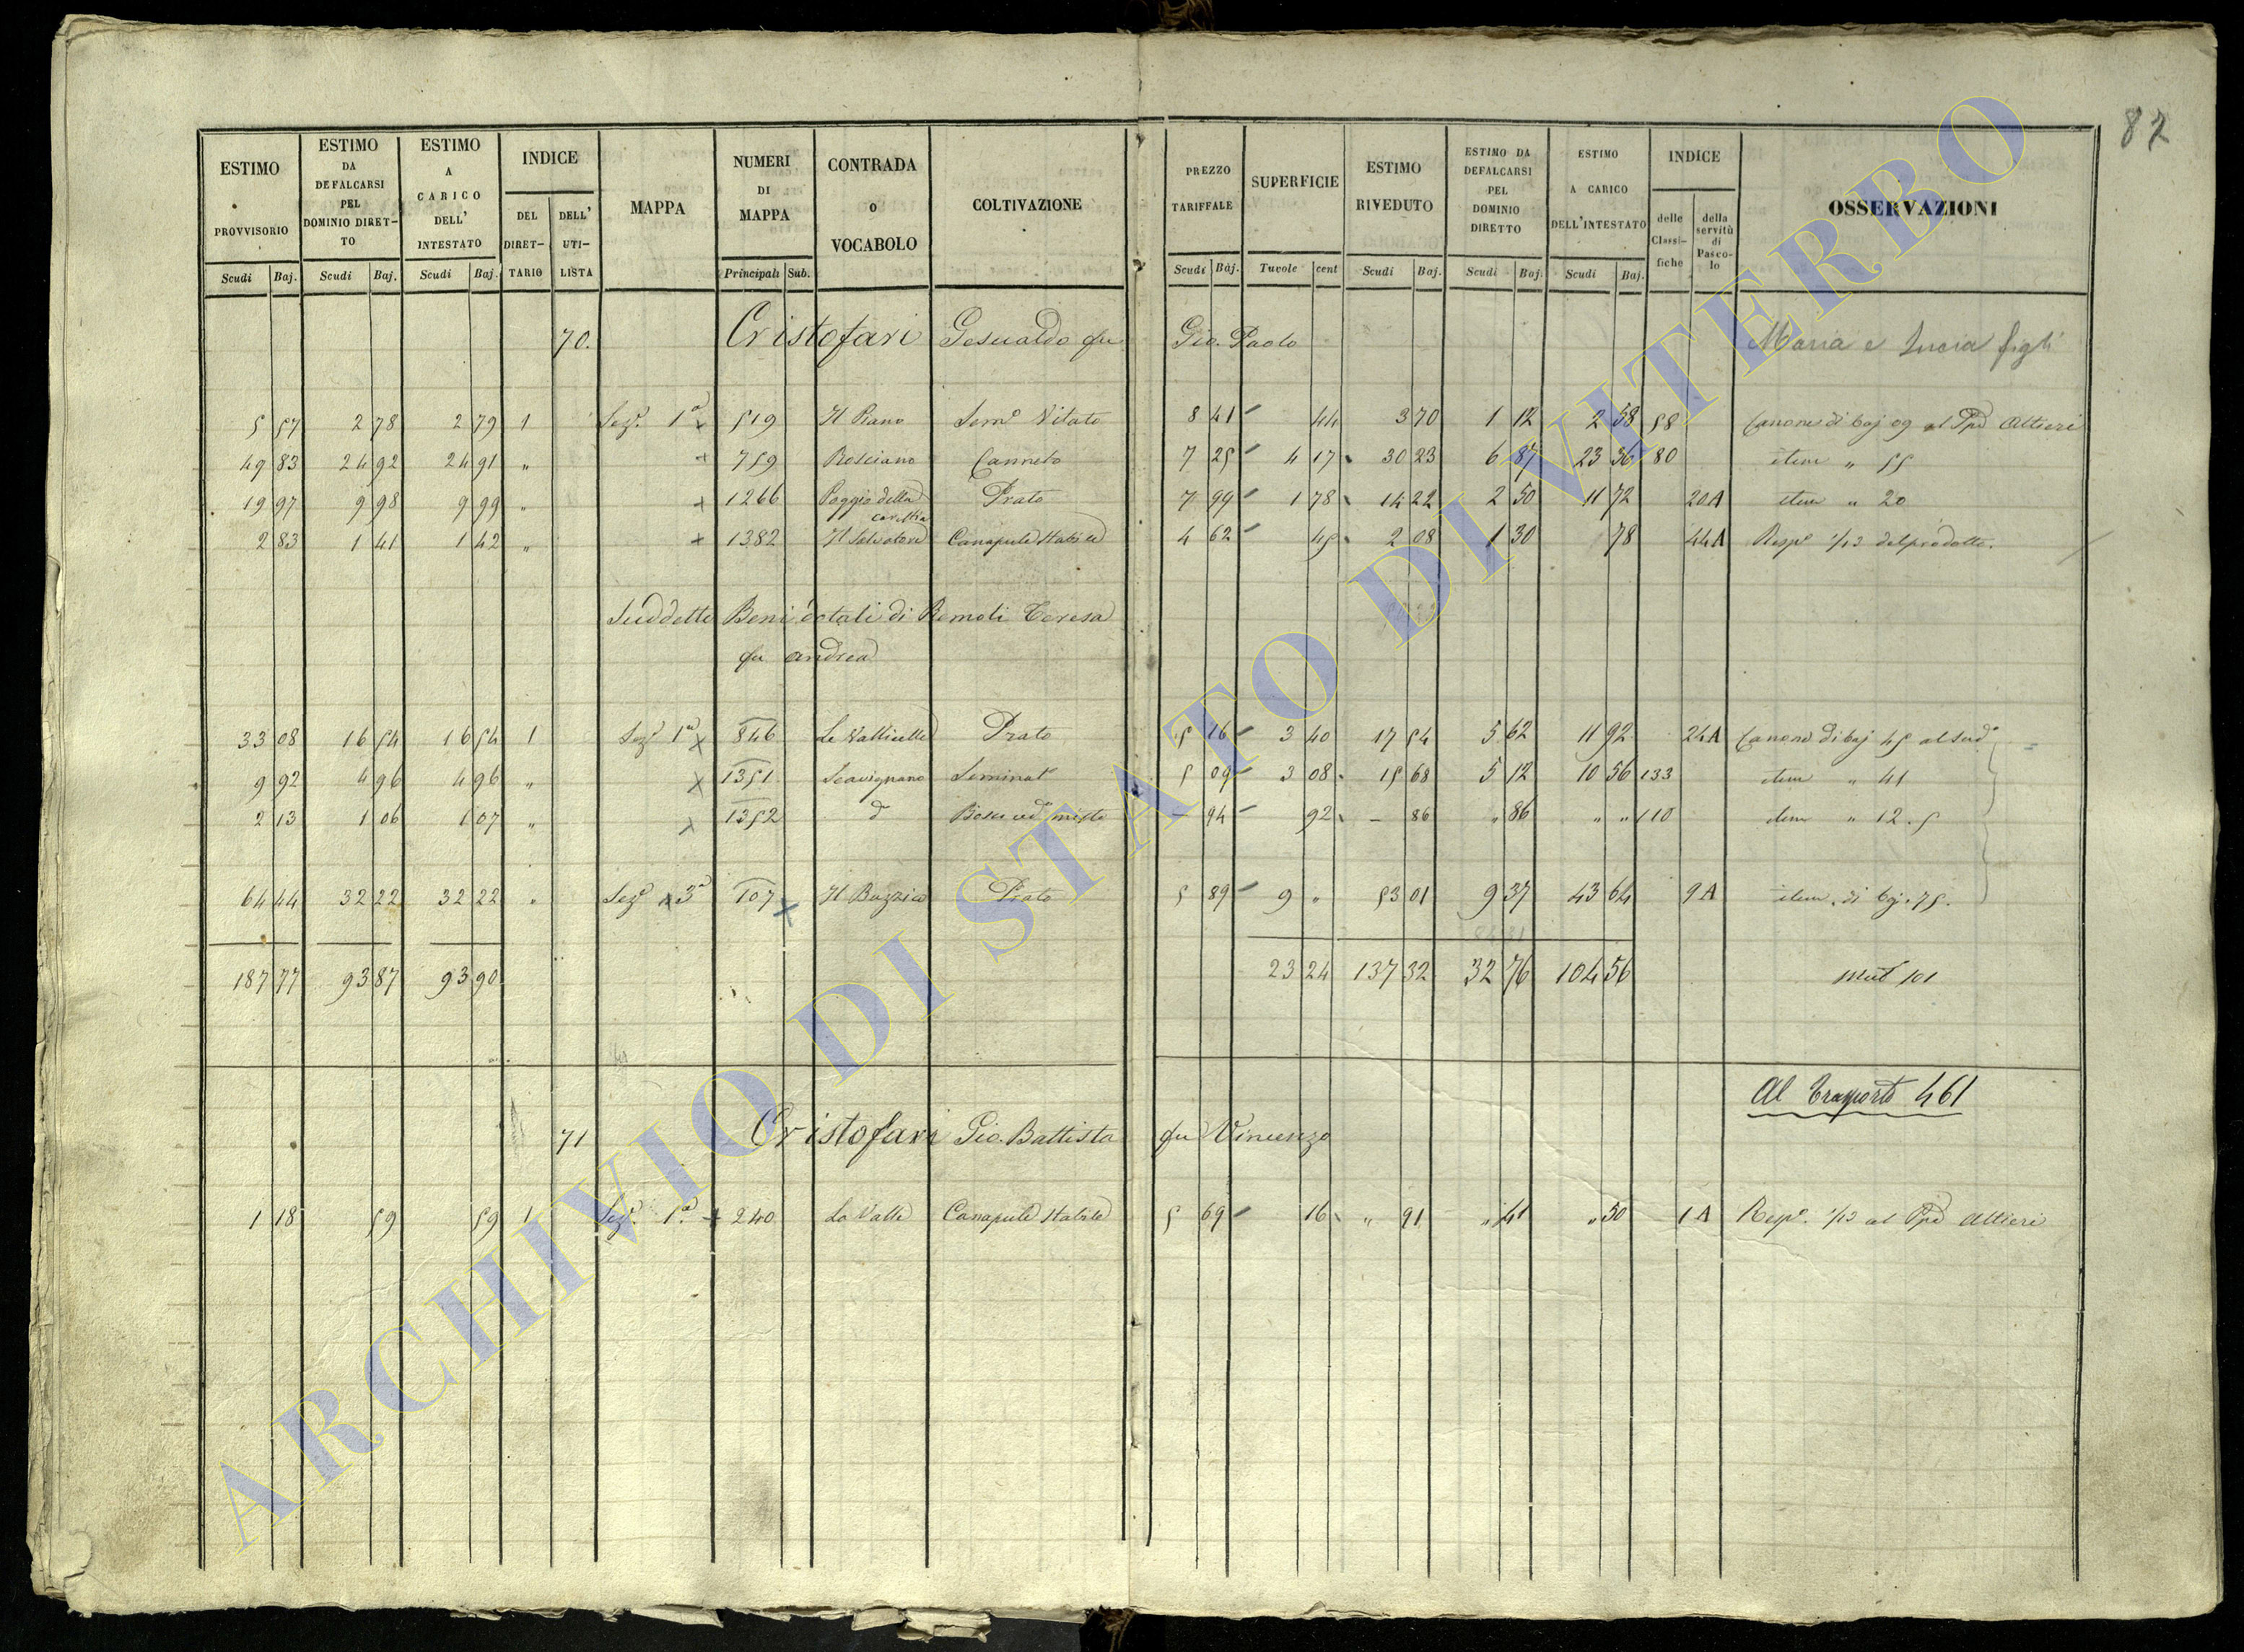 87
ESTIMO PROVVISORIO Scudi Baj.
ESTIMO DA DEFALCARSI PEL DOMINIO DIRETTO Scudi Baj.
ESTIMO A CARICO DELL' INTESTATO Scudi Baj.
INDICE DEL DIRETTARIO DELL' UTILISTA
MAPPA
NUMERI DI MAPPA Principali Sub.
CONTRADA O VOCABOLO
COLTIVAZIONE
PREZZO TARIFFALE Scudi Baj.
SUPERFICIE Tavole cent
ESTIMO RIVEDUTO Scudi Baj.
ESTIMO DA DEFALCARSI PEL DOMINIO DIRETTO Scudi Baj.
ESTIMO A CARICO DELL'INTESTATO Scudi Baj.
INDICE delle Classifiche della servitù di Pascolo
OSSERVAZIONI
70. Cristofari Gesualdo fu Gio. Paolo Maria e Lucia figli
5 57 2 78 2 79 1 Sez.e 1a 519 Il Piano Sem.o Vitato 8 41 44 3 70 1 12 2 58 58 Canone di baj 09 al Ppe Altieri
49 83 24 92 24 91 " 759 Rosciano Canneto 7 25 4 17 30 23 6 87 23 36 80 item " 55
19 97 9 98 9 99 " 1266 Poggio della Prato 7 99 1 78 14 22 2 50 11 72 20A item " 20
2 83 1 41 1 42 " 1382 Il Salvatore Canapule stabile 4 62 45 2 08 1 30 78 44A Resp.e 1/12 del prodotto.
Suddetto Beni dotali di Remoli Teresa
fu Andrea
33 08 16 54 16 54 1 Sez.e 1a 846 Le Vallicelle Prato 5 16 3 40 17 54 5 62 11 92 24A Canone di baj 45 al sud.o
9 92 4 96 4 96 " 1351 Scavignano Seminat.o 5 09 3 08 15 68 5 12 10 56 133 item " 41
2 13 1 06 1 07 " 1352 d.o misto 94 92 – 86 " 86 " " 110 item " 12.5
64 44 32 22 32 22 " Sez.e 3a 107 Prato 5 89 9 " 53 01 9 37 43 64 9A item di baj. 75.
187 77 93 87 93 90 23 24 137 32 32 76 104 56 101
Al Trasporto 461
71 Cristofari Gio. Battista fu Vincenzo
1 18 59 59 1 Sez.e 1a 240 La Valle Canapule stabile 5 69 16 " 91 " 41 " 50 1A Resp.e 1/12 al Ppe Altieri
ARCHIVIO DI STATO DI VITERBO